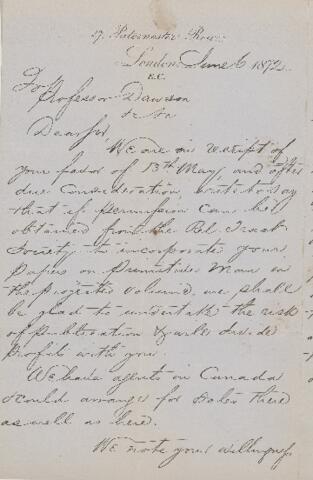 27, Paternoster Row.
London, June 6 1872.
E.C.
To
Professor Dawson
Dear Sir
We are on receipt of
your favor of 13th May, and after
due consideration write to say
that if permission can be
obtained from the Rel. Tract
Society to incorporate your
Papers on Primitive Man in
the projected volume, we shall
be glad to undertake the risk
of publication & wld divide
profits with you.
We have agents in Canada
& could arrange for sales there
as well as here.
We note your willingness